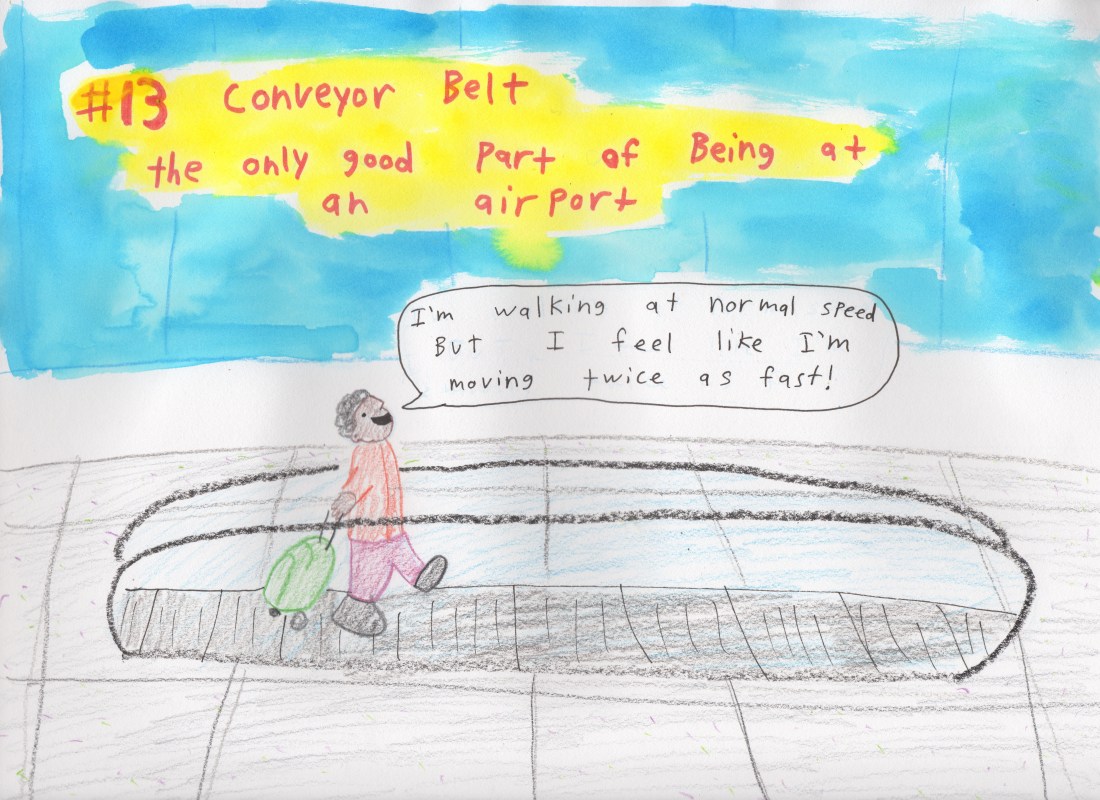 #13 Conveyor Belt
the only good Part of Being at
an airport
I'm walking at normal speed
But I feel like I'm
moving twice as fast!